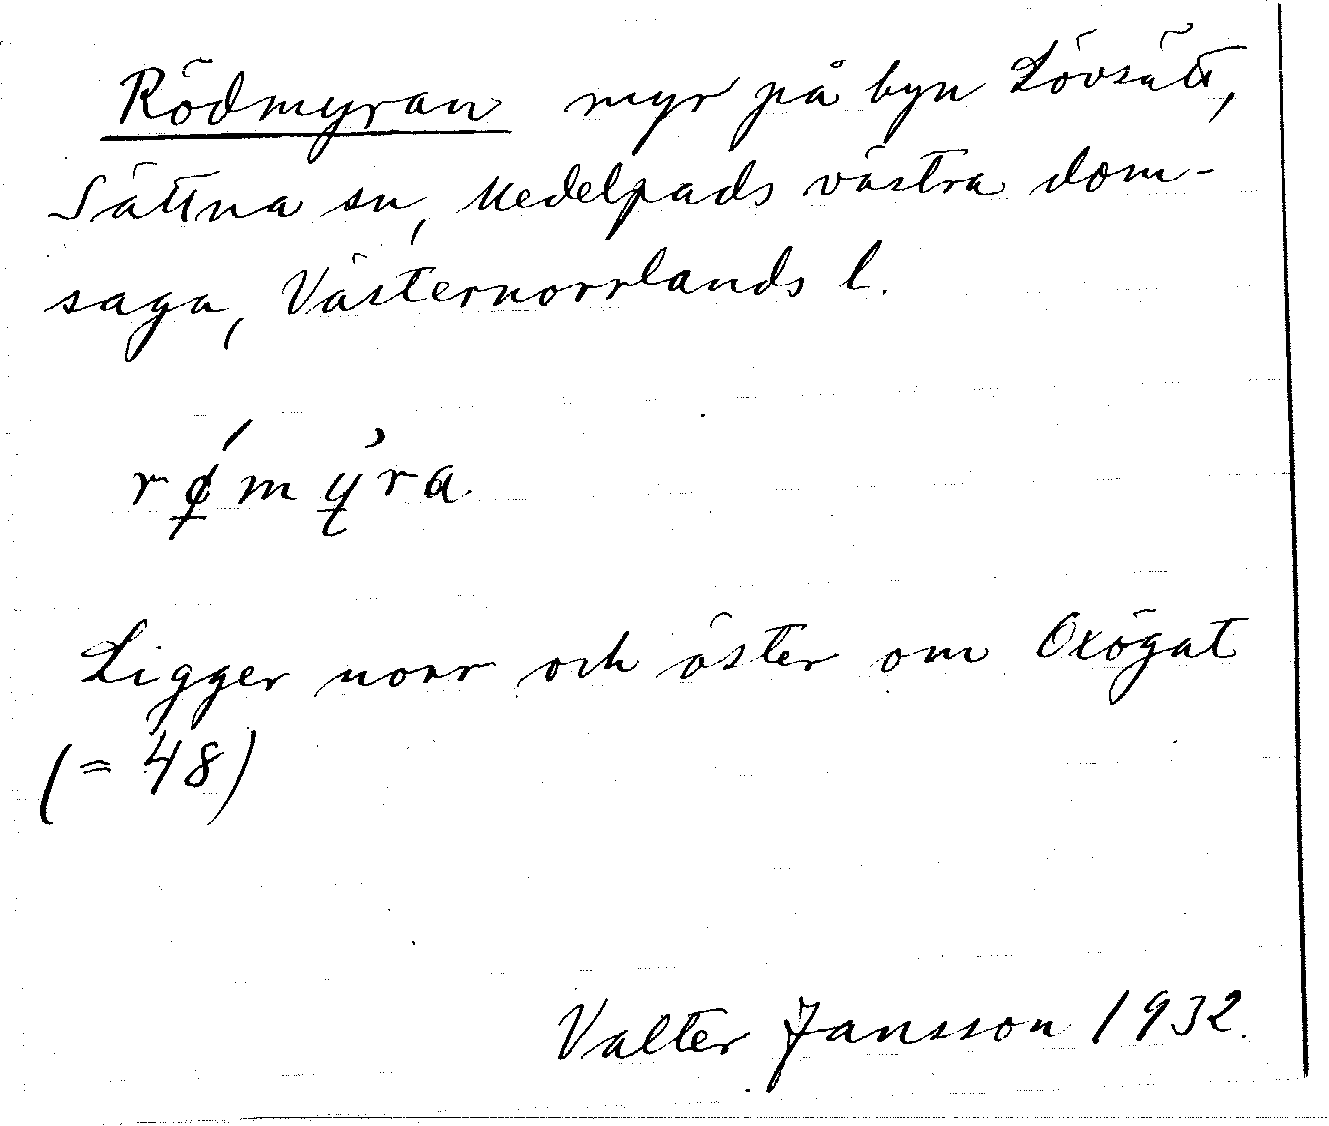 Rödmyran myr på byn Lövsätt,
Sättna sn, Medelpads västra dom-
saga, Västernorrlands l.
rǿ̲mỳ̲ra
Ligger norr och öster om Oxögat
(= 48)
Valter Jansson 1932.